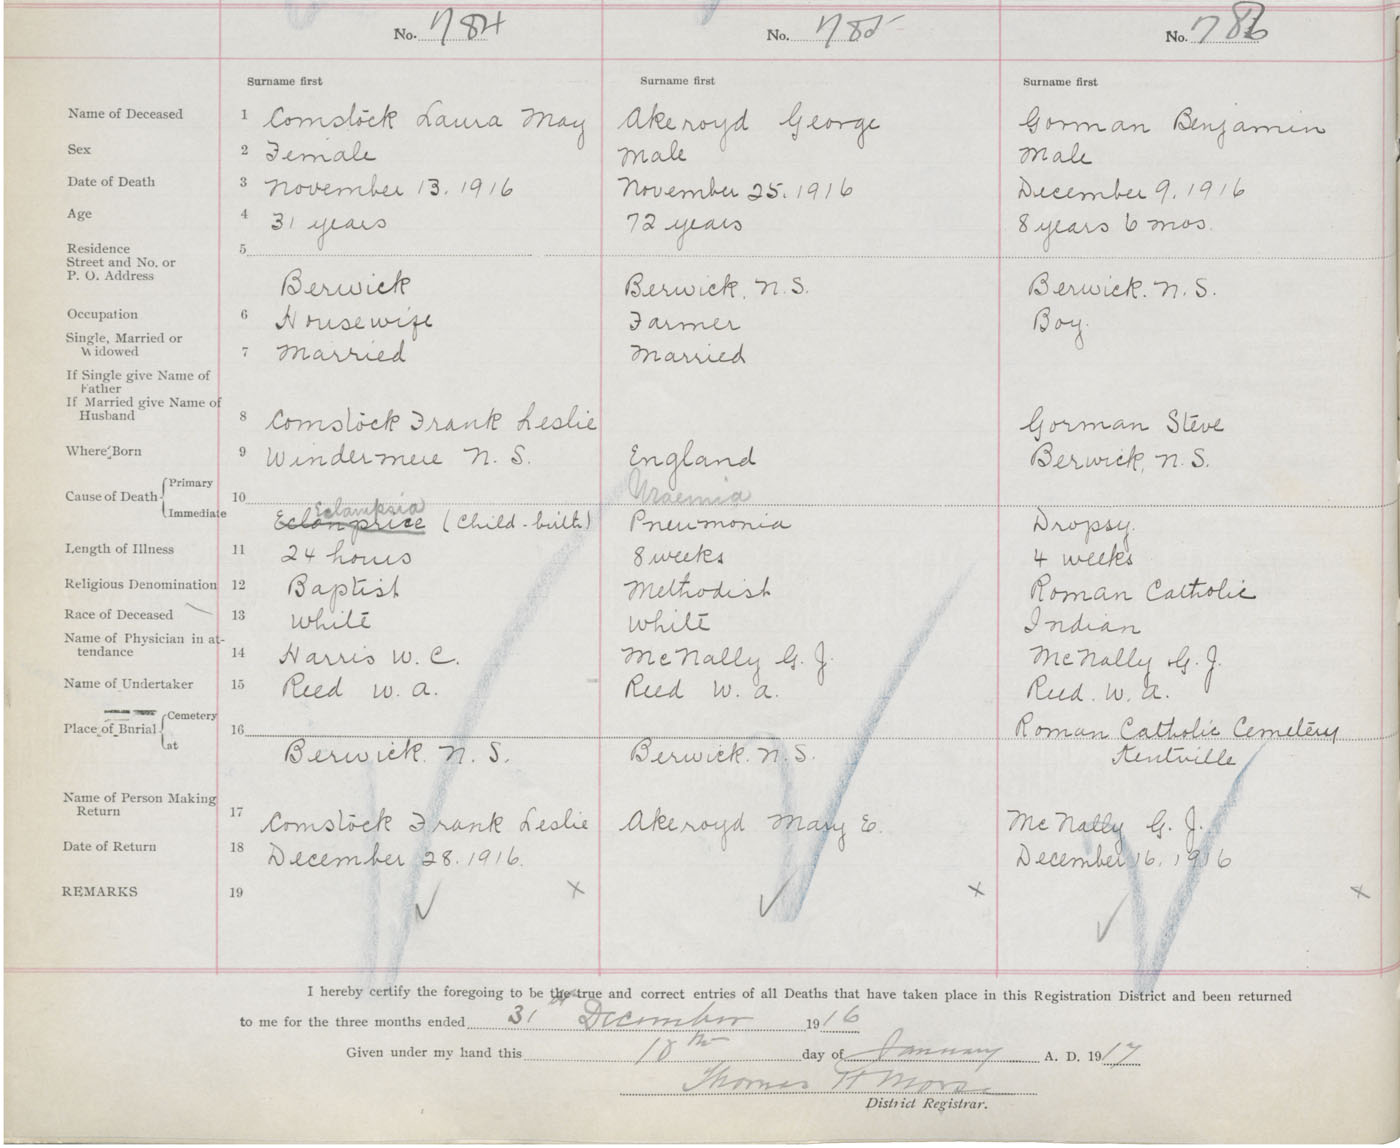 No. 784 No. 785 No. 786
Surname first Surname first Surname first
Name of Deceased 1 Comstock Laura May Akeroyd George Gorman Benjamin
Sex 2 Female Male Male
Date of Death 3 November 13. 1916 November 25. 1916 December 9. 1916
Age 4 31 years 72 years 8 years 6 mos.
Residence 5
Street and No. or
P. O. Address Berwick Berwick. N. S. Berwick. N. S.
Occupation 6 Housewife Farmer Boy.
Single, Married or
Widowed 7 Married Married
If Single give Name of
Father
If Married give Name of
Husband 8 Comstock Frank Leslie Gorman Steve
Where Born 9 Windermere N. S. England Berwick, N. S.
Cause of Death Primary 10 Uraemia
Eclampsia
Immediate Eclamprice (Child-birth) Pneumonia Dropsy.
Length of Illness 11 24 hours 8 weeks 4 weeks
Religious Denomination 12 Baptist Methodist Roman Catholic
Race of Deceased 13 White White Indian
Name of Physician in at-
tendance 14 Harris W. C. McNally G. J. McNally G. J.
Name of Undertaker 15 Reed W. A. Reed W. A. Reed. W. A.
Place of Burial Cemetery 16 Roman Catholic Cemetery
at Berwick. N. S. Berwick. N. S. Kentville
Name of Person Making
Return 17 Comstock Frank Leslie Akeroyd Mary E. McNally G. J.
Date of Return 18 December 28. 1916. December 16. 1916
REMARKS 19
I hereby certify the foregoing to be the true and correct entries of all Deaths that have taken place in this Registration District and been returned
to me for the three months ended 31st December 1916
Given under my hand this 18th day of January A. D. 1917
Thomas H Morse
District Registrar.